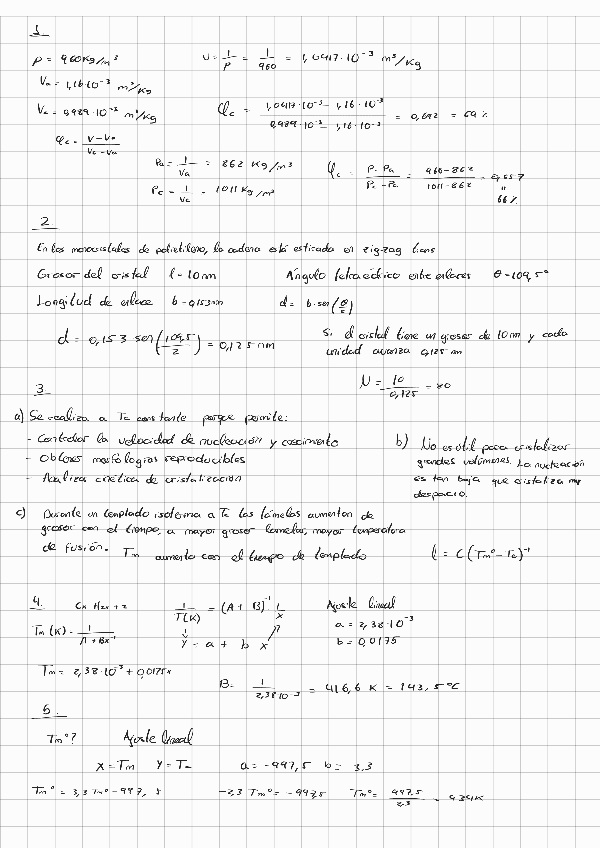 1
ρ = 960 Kg/m³
υ = 1/ρ = 1/960 = 1,0417·10⁻³ m³/Kg
Va = 1,16·10⁻³ m³/Kg
Vc = 0,989·10⁻³ m³/Kg
φc = (1,0417·10⁻³ - 1,16·10⁻³)/(0,989·10⁻³ - 1,16·10⁻³) = 0,692 = 69 %
φc = (V-Va)/(Vc-Va)
ρa = 1/Va = 862 Kg/m³
φc = (ρ-ρa)/(ρc-ρa) = (960-862)/(1011-862) = 0,657 = 66 %
ρc = 1/Vc = 1011 Kg/m³
2
En los monocristales de polietileno, la cadena está estirada en zig-zag trans
Grosor del cristal l = 10 nm
Ángulo tetraédrico entre enlaces θ = 109,5°
Longitud de enlace b = 0,153 nm
d = b·sen(θ/2)
d = 0,153 sen(109,5/2) = 0,125 nm
Si el cristal tiene un grosor de 10 nm y cada
unidad avanza 0,125 nm
N = 10/0,125 = 80
3
a) Se realiza a Tc constante porque permite:
- Controlar la velocidad de nucleación y crecimiento
- Obtener morfologías reproducibles
- Analizar cinética de cristalización
b) No es útil para cristalizar
grandes volúmenes. La nucleación
es tan baja que cristaliza muy
despacio.
c) Durante un templado isotermo a Tc las lamelas aumentan de
grosor con el tiempo, a mayor grosor lamelar, mayor temperatura
de fusión. Tm aumenta con el tiempo de templado
l = C(Tm° - Tc)⁻¹
4.
Cx H2x+2
1/T(K) = (A + B)⁻¹ 1/x
Tm (K) = 1/(A + Bx⁻¹)
y = a + b x
Ajuste lineal
a = 2,38·10⁻³
b = 0,0175
Tm = 2,38·10⁻³ + 0,0175x
B = 1/2,38·10⁻³ = 416,6 K = 143,5 °C
5.
Tm°? Ajuste lineal
X = Tm Y = Tc a = -997,5 b = 3,3
Tm° = 3,3 Tm° - 997,5
-2,3 Tm° = -997,5
Tm° = 997,5/2,3 = 434 K